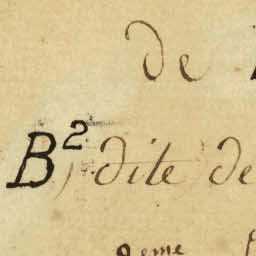 de
B², dite de
2eme